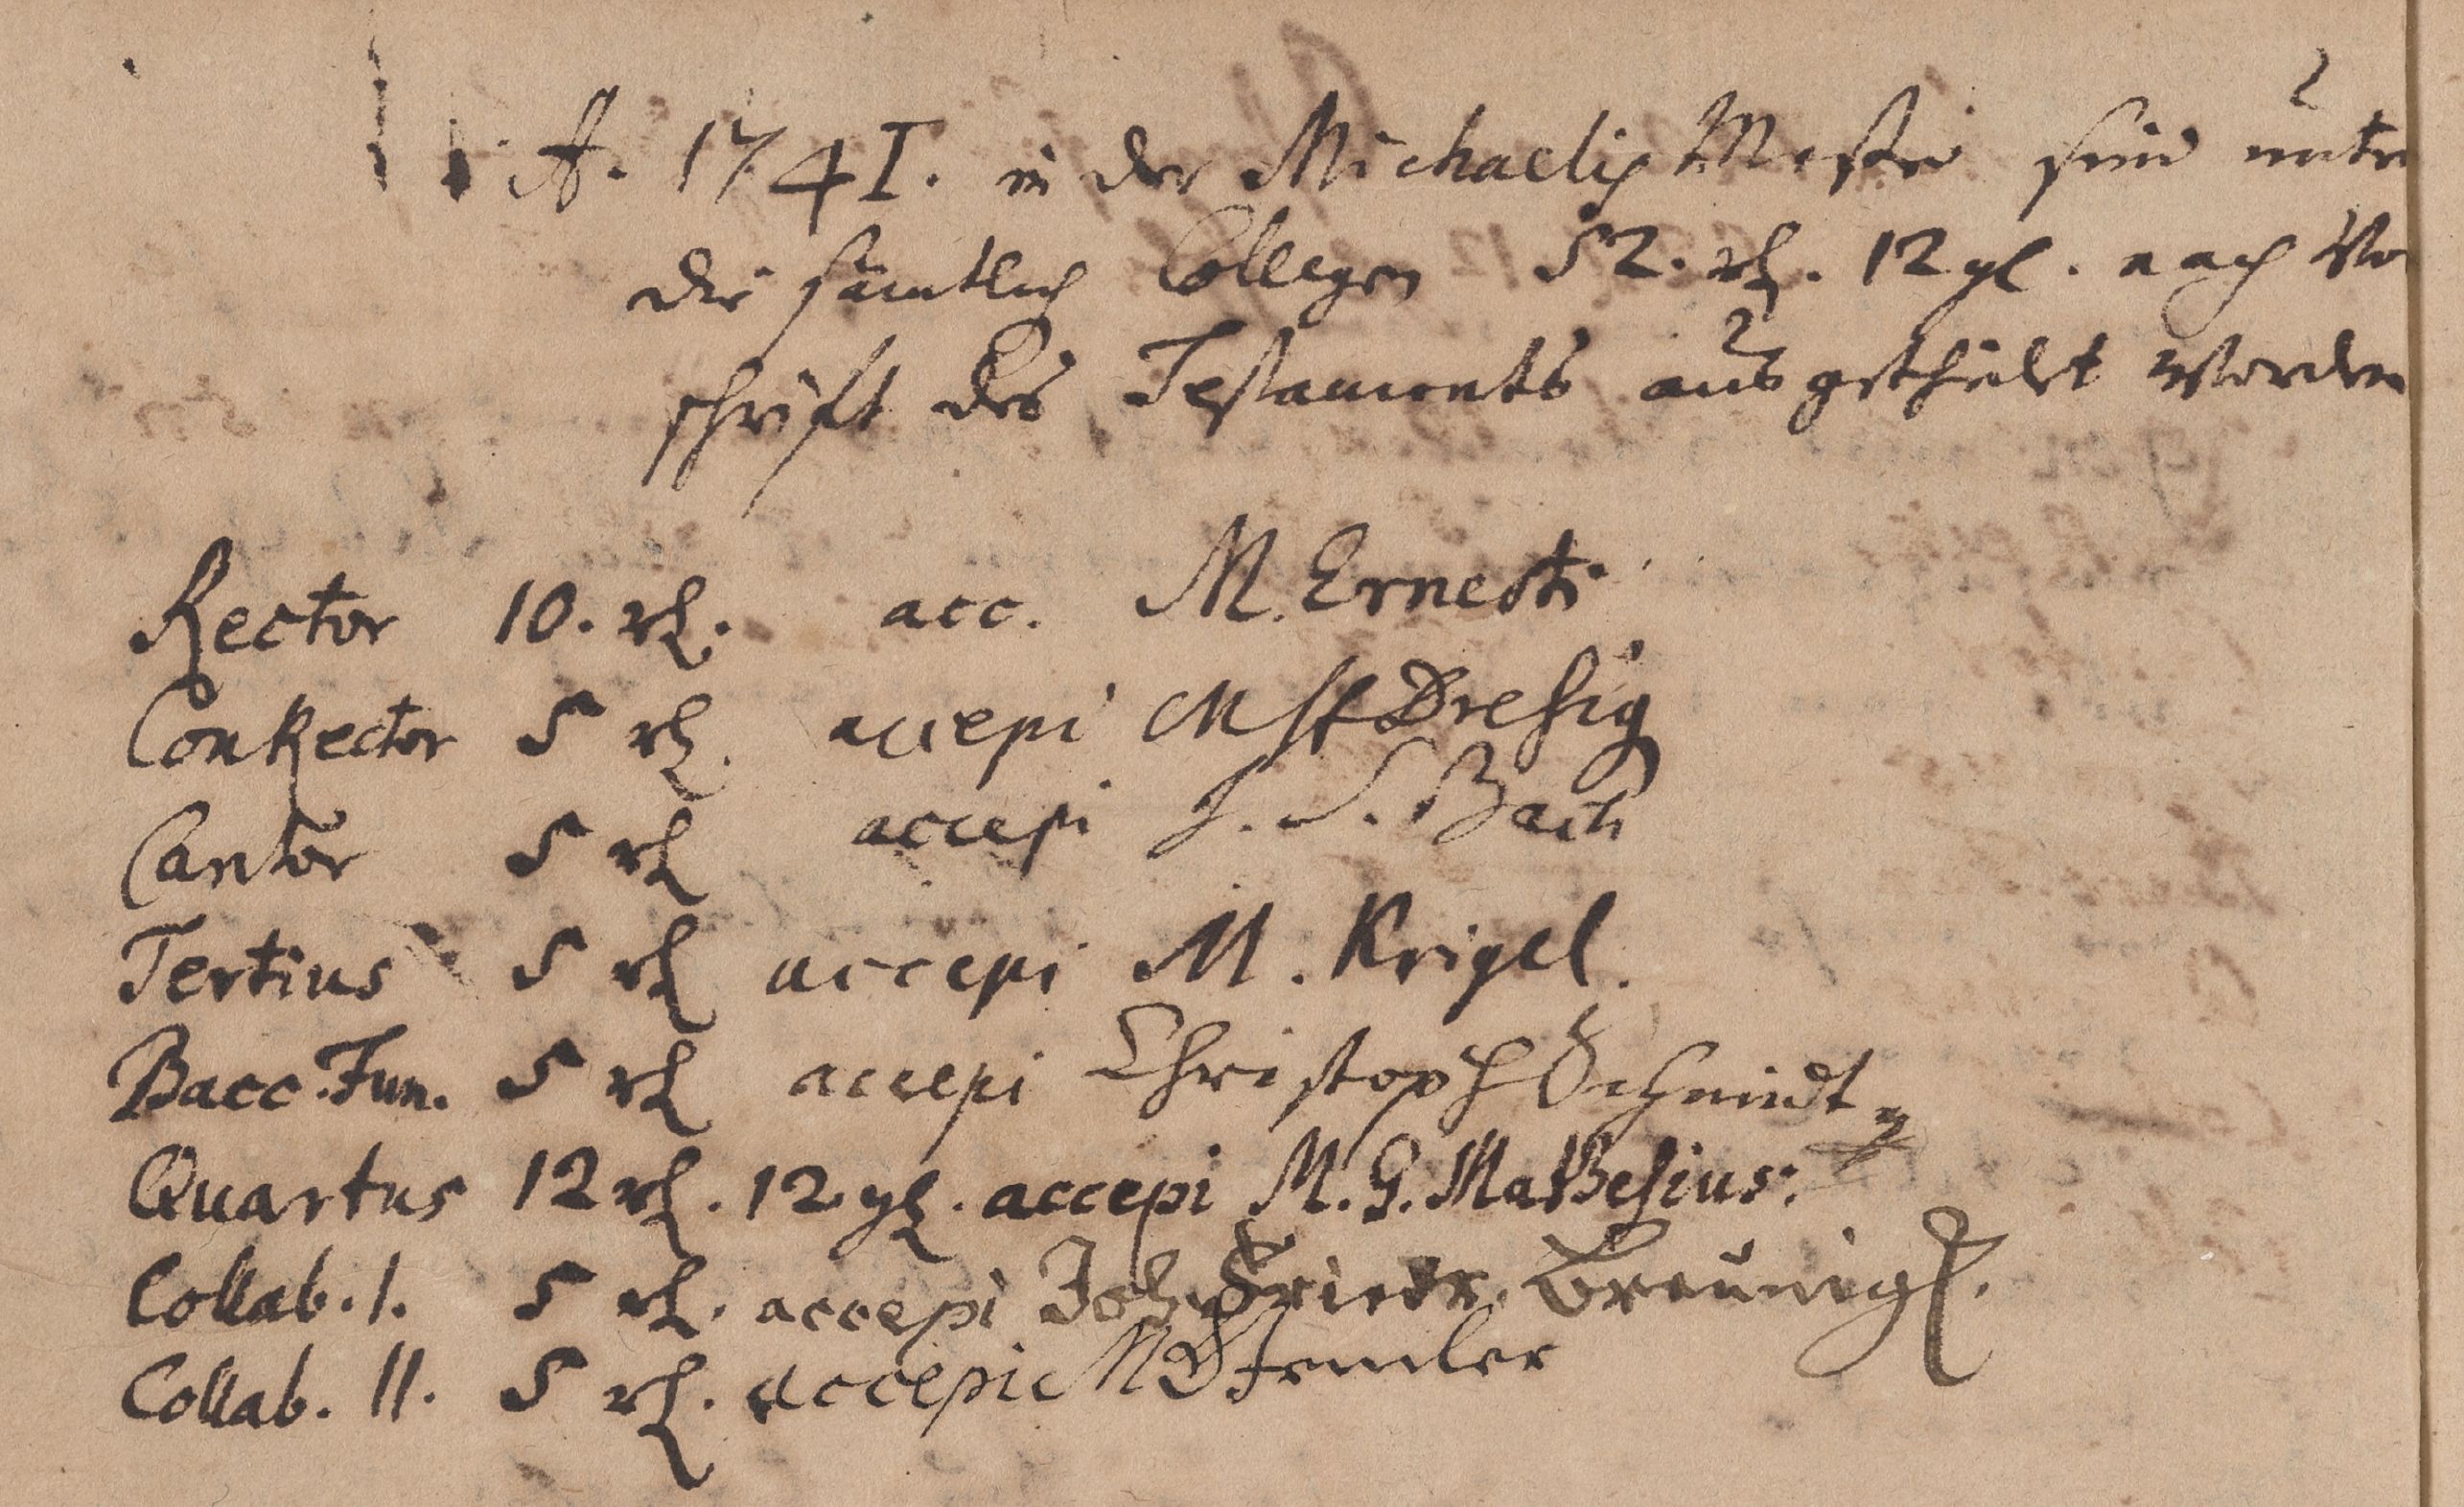 A. 1741. in der Michaelis Messe sind unter
die sämtlich Collegen 52. rl. 12 gl. nach Vor
schrifft des Testaments ausgetheilt worden
Rector 10. rl. acc. M. Ernesti
ConRector 5 rl. accepi M Dresig
Cantor 5 rl accepi J. S. Bach
Tertius 5 rl accepi M. Krigel.
Bacc. Fun. 5 rl accepi Christoph Schmidt
Quartus 12 rl. 12 gl. accepi M. G. Mathesius.
Collab. I. 5 rl. accepi Joh. Friedr. Breunigk.
Collab. II. 5 rl. accepi M